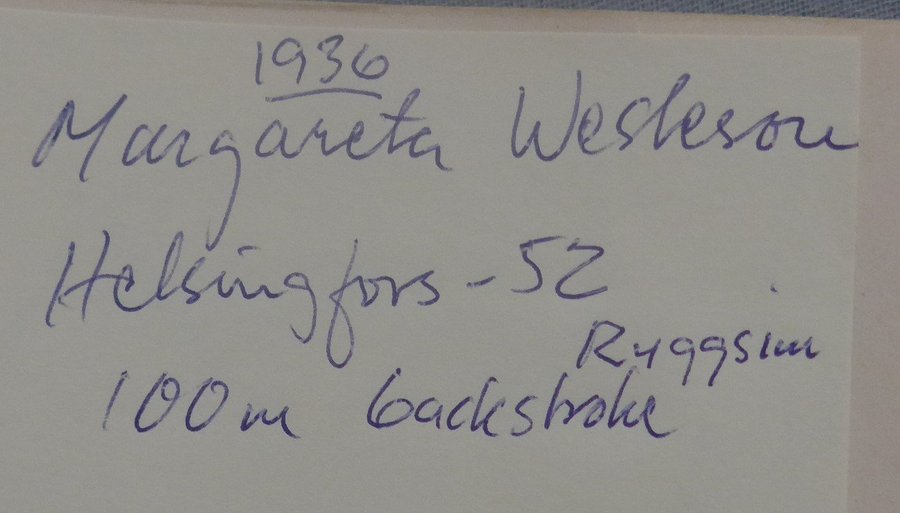 1936
Margareta Wesleson
Helsingfors - 52
Ryggsim
100 m backstroke